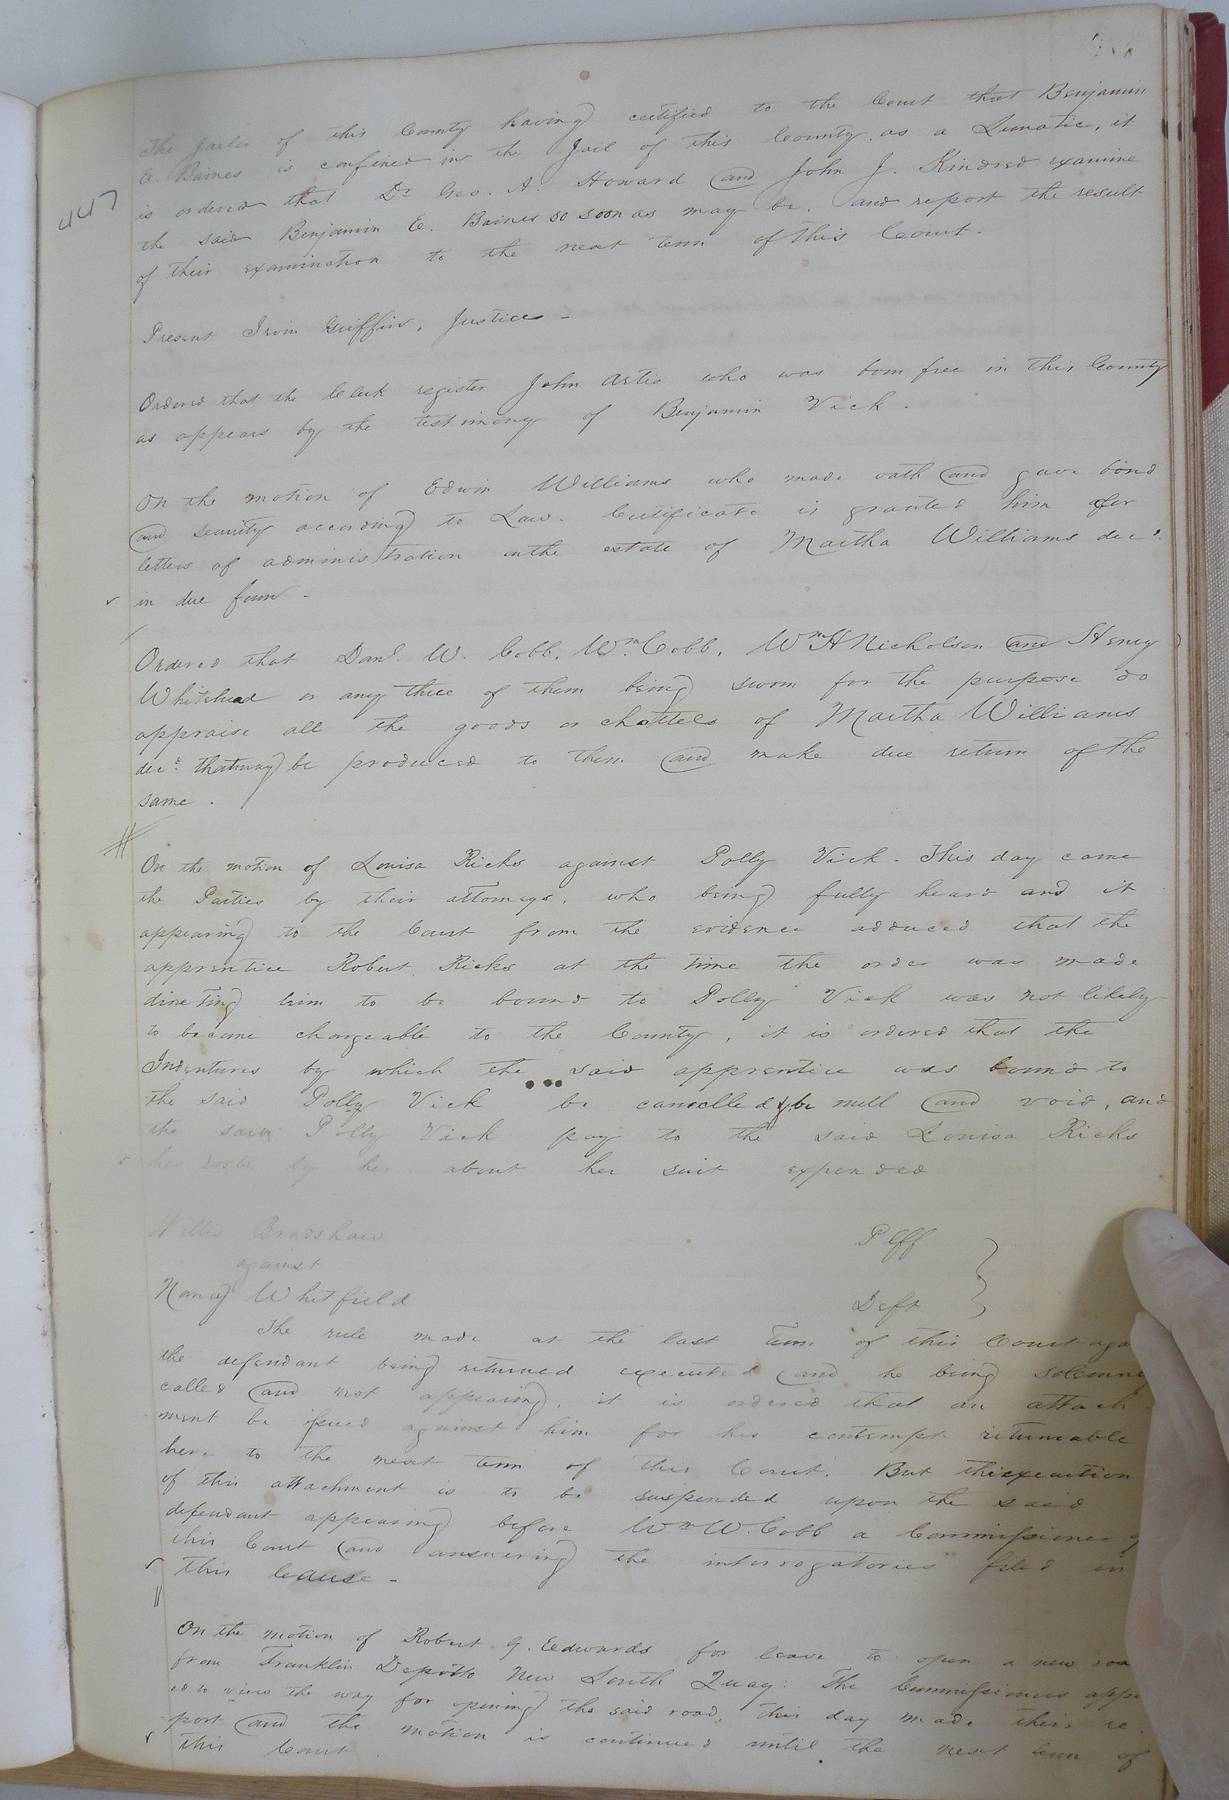 447
The Jailor of this County having certified to the Court that Benjamin
E. Baines is confined in the Jail of this County, as a Lunatic, it
is ordered that Dr Geo. A. Howard and John J. Kindred examine
the said Benjamin E. Baines so soon as may be, and report the result
of their examination to the next term of this Court.
Present Irvin Griffin, Justices -
Ordered that the Clerk register John Artis who was born free in this County
as appears by the testimony of Benjamin Vick.
On the motion of Edwin Williams who made oath and gave bond
and security according to Law. Certificate is granted him for
letters of administration on the estate of Martha Williams decd.
in due form -
Ordered that Danl. W. Cobb, Wm Cobb, Wm H Nicholson and Henry
Whitehead or any three of them being sworn for the purpose do
appraise all the goods or chattels of Martha Williams
decd. that may be produced to them and make due return of the
same.
On the motion of Louisa Ricks against Polly Vick - This day came
the Parties by their attorneys, who being fully heard and it
appearing to the Court from the evidence adduced that the
apprentice Robert Ricks at the time the order was made
directing him to be bound to Polly Vick was not likely
to become chargeable to the County, it is ordered that the
Indentures by which the said apprentice was bound to
the said Polly Vick be cancelled & be null and void, and
the said Polly Vick pay to the said Louisa Ricks
her costs by her about her suit expended
Willis Bradshaw Plff
against
Nancy Whitfield Deft
The rule made at the last Term of this Court aga
the defendant being returned executed and he being solemn
called and not appearing, it is ordered that an attach-
ment be issued against him for his contempt returnable
here to the next term of this Court. But the execution
of this attachment is to be suspended upon the said
defendant appearing before Wm W. Cobb a Commissioner of
this Court and answering the interrogatories filed in
this Cause -
On the motion of Robert G. Eedwards for leave to open a new roa
from Franklin Depot to New South Quay: The Commissioners appo
ed to view the way for opening the said road, this day made their re-
port and the motion is continued until the next term of
this Court